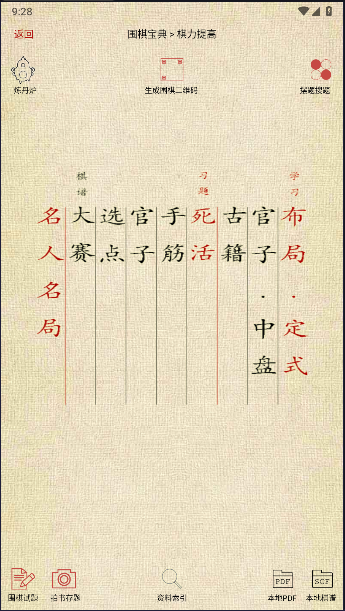 9:28
返回
围棋宝典 > 棋力提高
炼丹炉
生成围棋二维码
摆题搜题
学习
布局·定式
官子·中盘
古籍
习题
死活
手筋
官子
选点
棋谱
大赛
名人名局
围棋试题
拍书存题
资料索引
PDF
本地PDF
SGF
本地棋谱